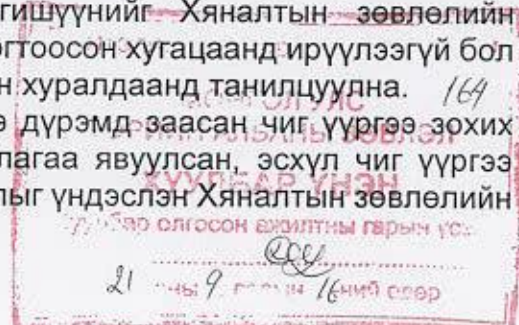 гишүүнийг Хяналтын зөвлөлийн
огтоосон хугацаанд ирүүлээгүй бол
н хуралдаанд танилцуулна. 164
э дүрэмд заасан чиг үүргээ зохих
лагаа явуулсан, эсхүл чиг үүргээ
лыг үндэслэн Хяналтын зөвлөлийн
ХУУЛБАР ҮНЭН
олгосон ажилтны гарын үс
21 ны 9 16 ний өдөр